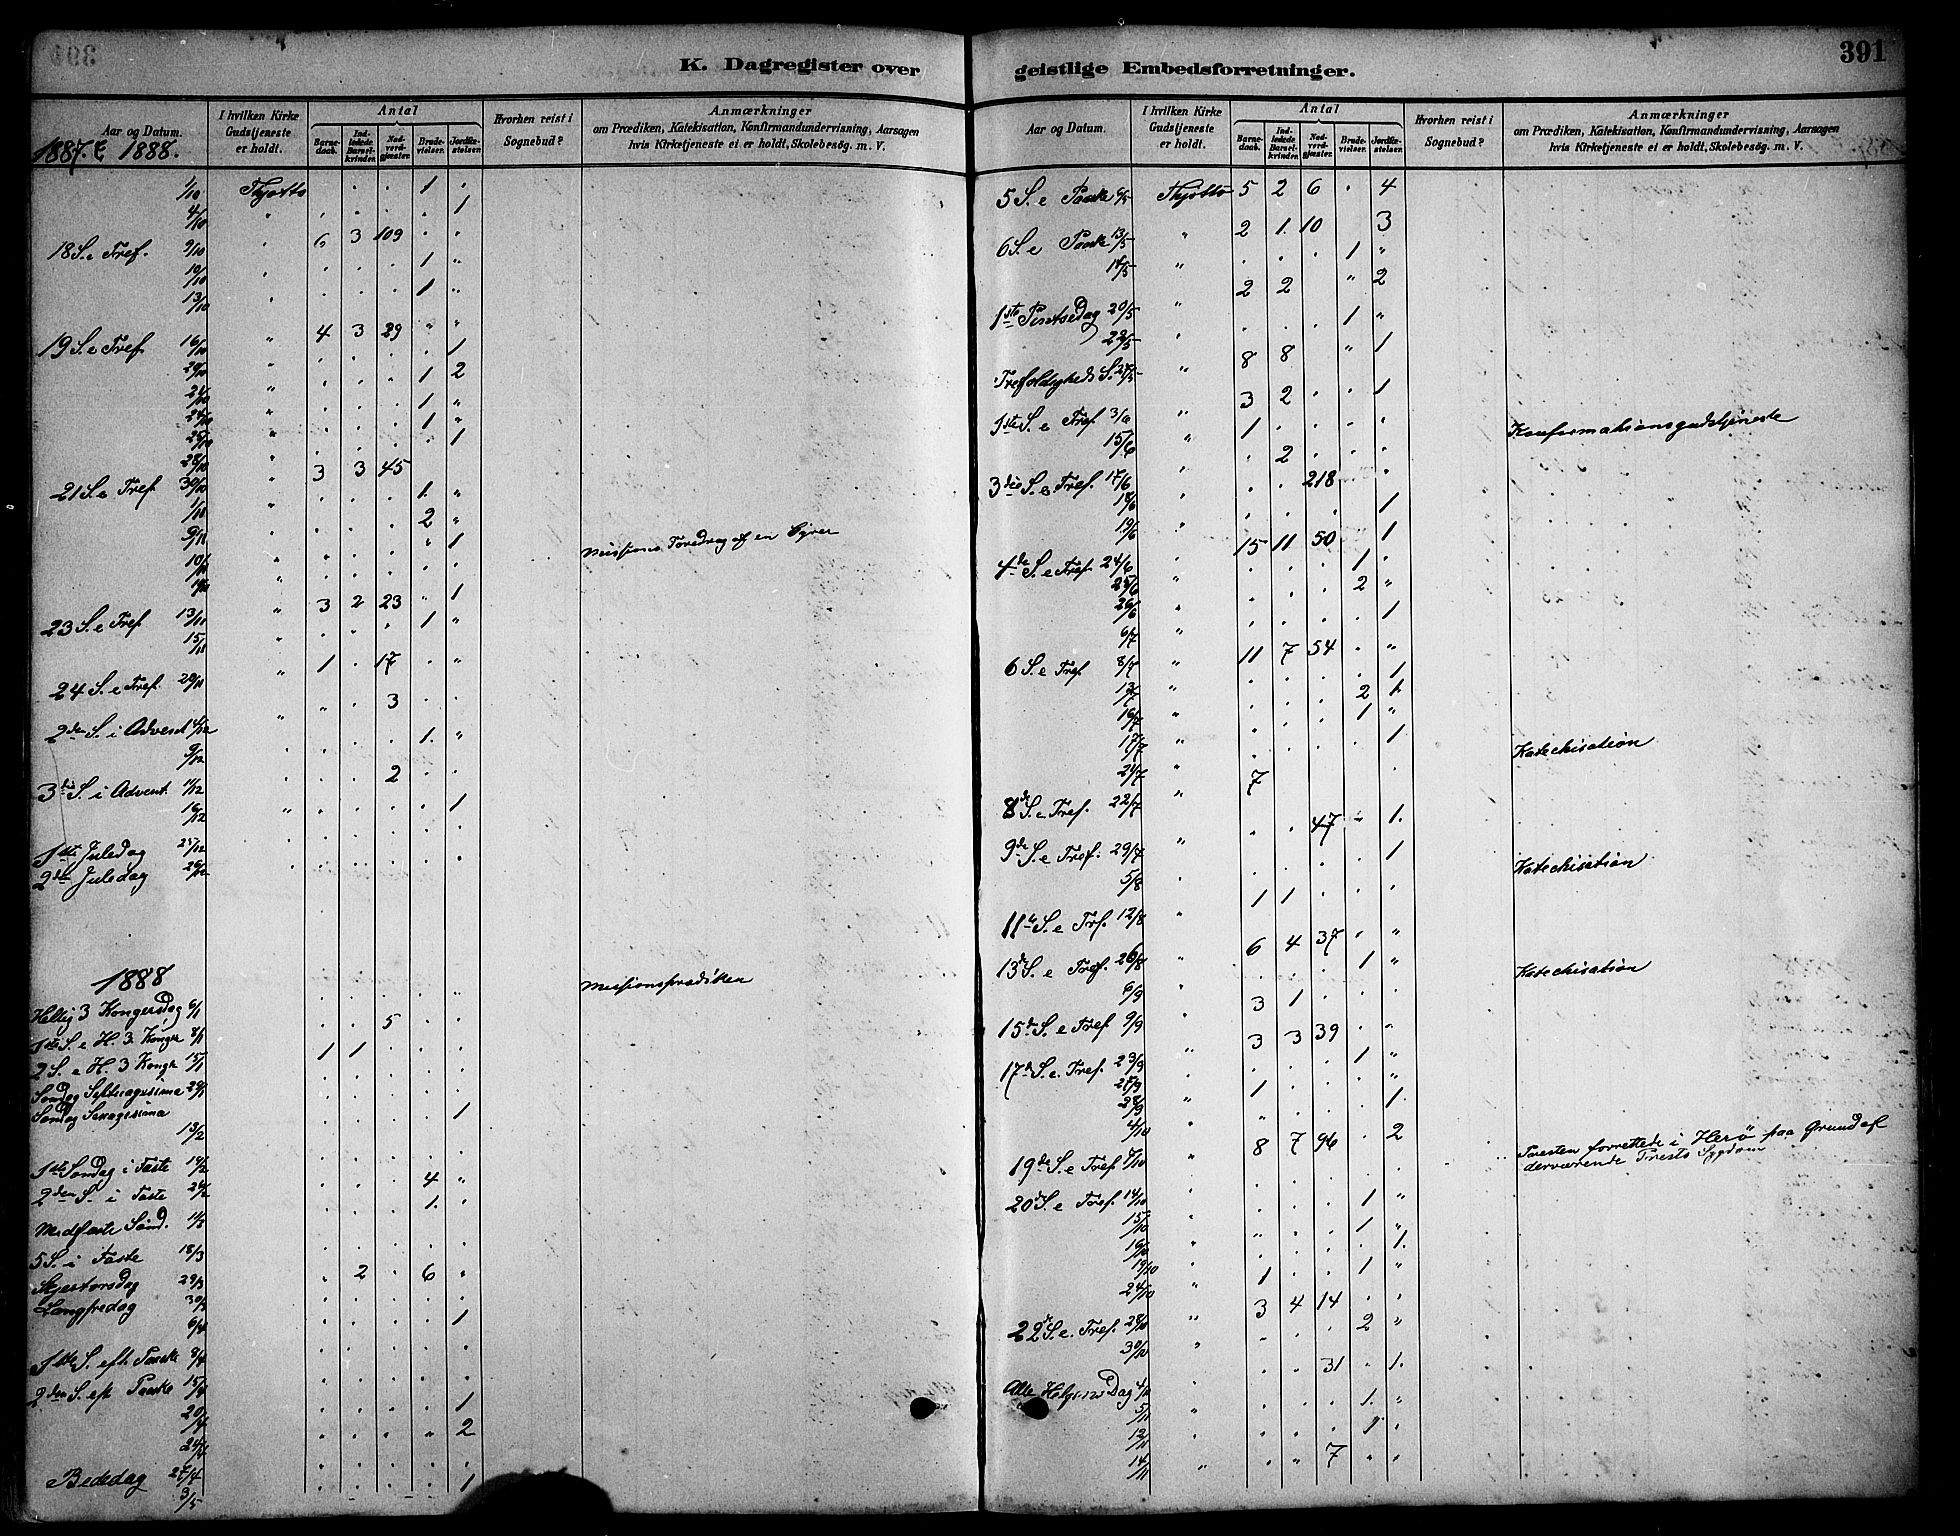 K. Dagregister over geistlige Embedsforretninger.
391
Aar og Datum.
I hvilken Kirke Gudstjeneste er holdt.
Antal
Barnedaab.
Indledede Barselkvinder.
Nadverdgjæster.
Brudevielser.
Jordfæstelser.
Hvorhen reist i Sognebud?
Anmærkninger
om Prædiken, Katekisation, Konfirmandundervisning, Aarsagen
hvis Kirketjeneste ei er holdt, Skolebesög. m. V.
1887. & 1888.
1/10 Thjøttø . . . 1 .
4/10 " . . . . 1
18 S. e Tref. 9/10 " 6 3 109 . .
10/10 " . . . 1 "
13/10 " . . . 1 "
19 S. e Tref 16/10 " 4 3 29 " "
. . . . 1
. . . 1 2
. . . 1 "
. . . 1 "
28/10 " . . . . 1
21 S. e Tref. 30/10 " 3 3 45
1/11 " . . . 1. "
9/11 " . . . 2 "
10/11 " . . . " 1 Missions Foredrag af en Syrer
23 S. e Tref 13/11 " 3 2 23 " 1
15/11 " . . . 1 "
24 S. e Tref. 20/11 " 1 . 17 . "
2den S. i Advent 4/12 " " . 3 . .
9/12 " . . . 1. "
3die S. i Advent. 11/12 " . . 2 . .
16/12 " . . . . 1
1ste Juledag 25/12
2den Juledag 26/12
1888
Hellig 3 Kongersdag 6/1 Missionsprædiken
1ste S. e H. 3 Konger 8/1 . . 5 . .
2 S. e H. 3 Kongr 15/1 1 1 . . .
Søndag Septuagesima 29/1
Søndag Sexagesima
13/2 . . . . 1
1ste Søndag i Faste
2den S. i Faste 26/2 . . . 4 "
Midfaste Sønd. 11/3 . . . 1. .
5 S. i Faste 18/3
Skjertorsdag 29/3 . 2 . 6 .
Langfredag 30/3
6/4 . . . . 1
1ste S. eft. Paaske 8/4
2den S. eft Paaske 15/4
20/4 . . . . 1
24/4 . . . " 2
Bededag 27/4
3/5 . . . . 1
Aar og Datum.
I hvilken Kirke Gudstjeneste er holdt.
Antal
Barnedaab.
Indledede Barselkvinder.
Nadverdgjæster.
Brudevielser.
Jordfæstelser.
Hvorhen reist i Sognebud?
Anmærkninger
om Prædiken, Katekisation, Konfirmandundervisning, Aarsagen
hvis Kirketjeneste ei er holdt, Skolebesög. m. V.
5 S. e Paaske 6/5 Thjøttø 5 2 6 . 4
6 S. e Paaske 13/5 " 2 1. 10 3
14/5 " . . . 1 "
1ste Pintsedag 20/5 " 2 2 " 2
22/5 " . . . 1 "
Trefoldigheds S. 27/5 " 8 8 " 1
1ste S. e Tref. 3/6 " 3 2 . . 1
15/6 " 1 . . . . Konfirmationsgudstjeneste
3die S. e Tref. 17/6 " . 2 . . .
18/6 " . . 218
19/6 " . . . . 1
4de S. e Tref. 24/6 " 15 11 50 1
25/6 " . . . 1 .
26/6 " . . . 2 "
6/7 " . . . . 1
6 S. e Tref 8/7 " 11 7 54 . "
13/7 " . . . . 1
16/7 " . . . 2 1.
17/7 " . . . 1 "
. . . . 1 Katechisation
8de S. e Tref. 22/7 " 7
9de S. e Tref. 29/7 " . . 47 " 1.
5/8 " . . . . 1 Katechisation
11te S. e Trf. 12/8 " 1 1 . . .
13de S. e Tref. 26/8 " 6 4 37 . "
6/9 " . . . 1 " Katechisation
15de S. e Tref 9/9 " 3 1 . . .
17de S. e. Tref. 23/9 " 3 3 39 . "
27/9 . . . 1 "
28/9 " 1 . . . "
4/10 " . . . 1.
19de S. e Tref 7/10 " 8 7 96 . 2 Presten forrettede i Herø paa Grund af
derværende Prests Sygdom
20de S. e Tref. 14/10
15/10 . . . 1 "
16/10 . . . 1 "
19/10 . . . . 1.
24/10 " . . . 1 "
22de S. e. Tref. 28/10 " 3 4 14 . .
30/10 . . . 2 "
Alle Helgens Dag 4/11 . . 31 . 1.
5/11 " . . . 1. "
12/11 . . . 1 .
14/11 " . " 7 . .